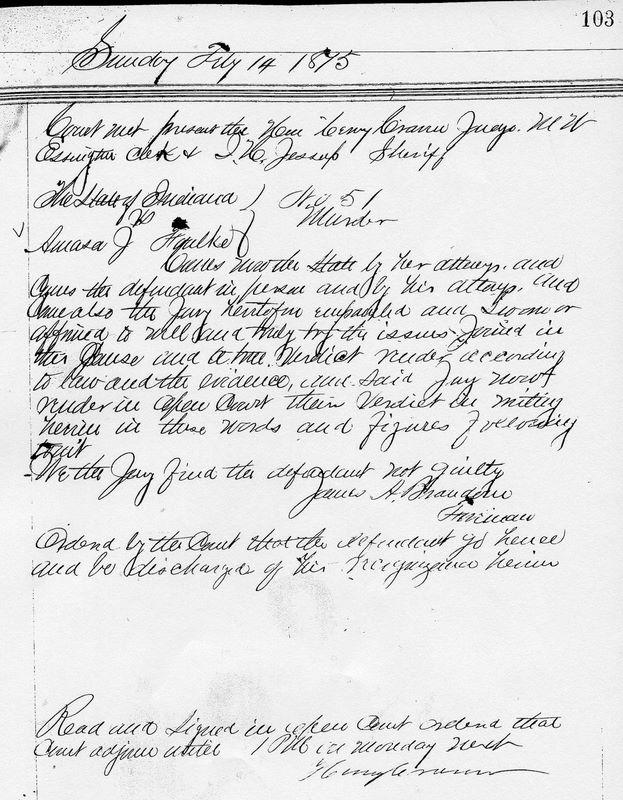 103
Sunday Feby 14 1875
Court met present the Hon Henry Craven Judge. M W
Essington Clerk & T. H. Jessup Sheriff
The State of Indiana ) No 51
vs Murder
Amasa J Faulke
Comes now the State by her attorneys. and
Comes the defendant in person and by his attorneys. And
Come also the Jury heretofore empanelled and Sworn or
affirmed to well and truly try the issues Joined in
this Cause and a true Verdict render according
to law and the evidence, and said Jury now
render in open Court their Verdict in writing
herein in these words and figures following
towit
We the Jury find the defendant not guilty
James A. Brandon
Foreman
Ordered by the Court that the defendant go hence
and be discharged of his recognizance herein
Read and Signed in open Court ordered that
Court adjourn until 1 PM on Monday next
Henry Craven